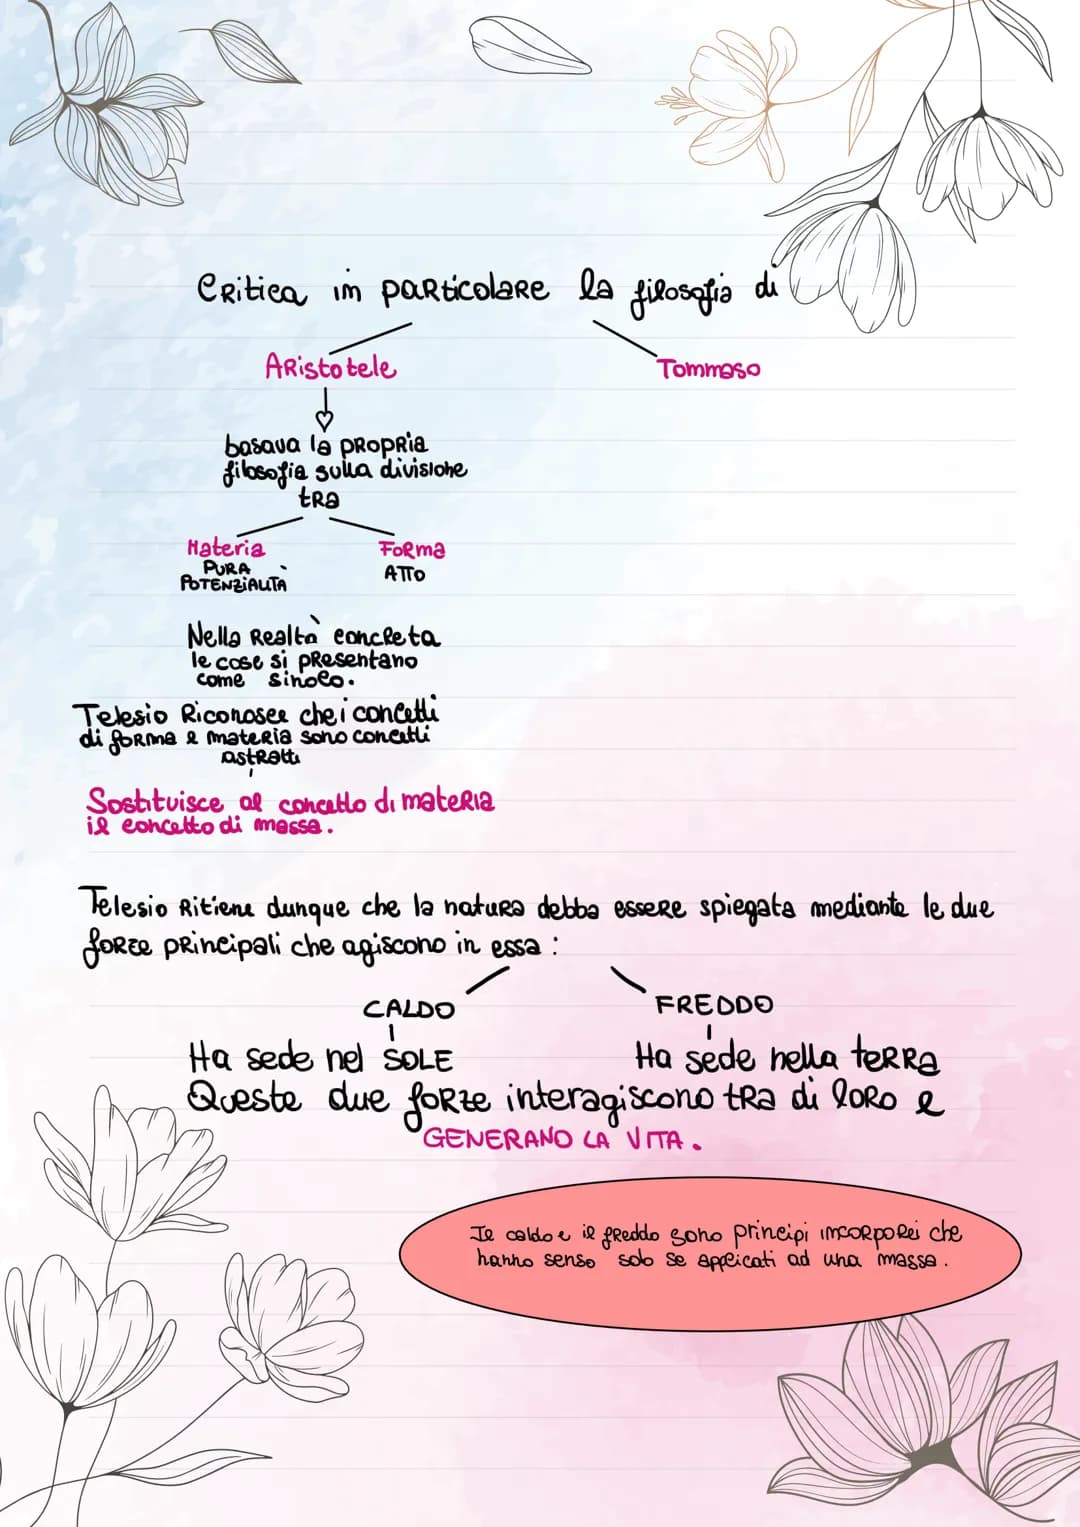 Critica in particolare la filosofia di
Aristotele
Tommaso
basava la propria
filosofia sulla divisione
tra
Materia
Forma
PURA
POTENZIALITÀ
ATTO
Nella Realtà concreta
le cose si presentano
come sinolo.
Telesio Riconosce che i concetti
di forma e materia sono concetti
astratti
Sostituisce al concetto di materia
il concetto di massa.
Telesio Ritiene dunque che la natura debba essere spiegata mediante le due
forze principali che agiscono in essa :
CALDO
FREDDO
Ha sede nel SOLE
Ha sede nella terra
Queste due forze interagiscono tra di loro e
GENERANO LA VITA.
Il caldo e il freddo sono principi incorporei che
hanno senso solo se applicati ad una massa.